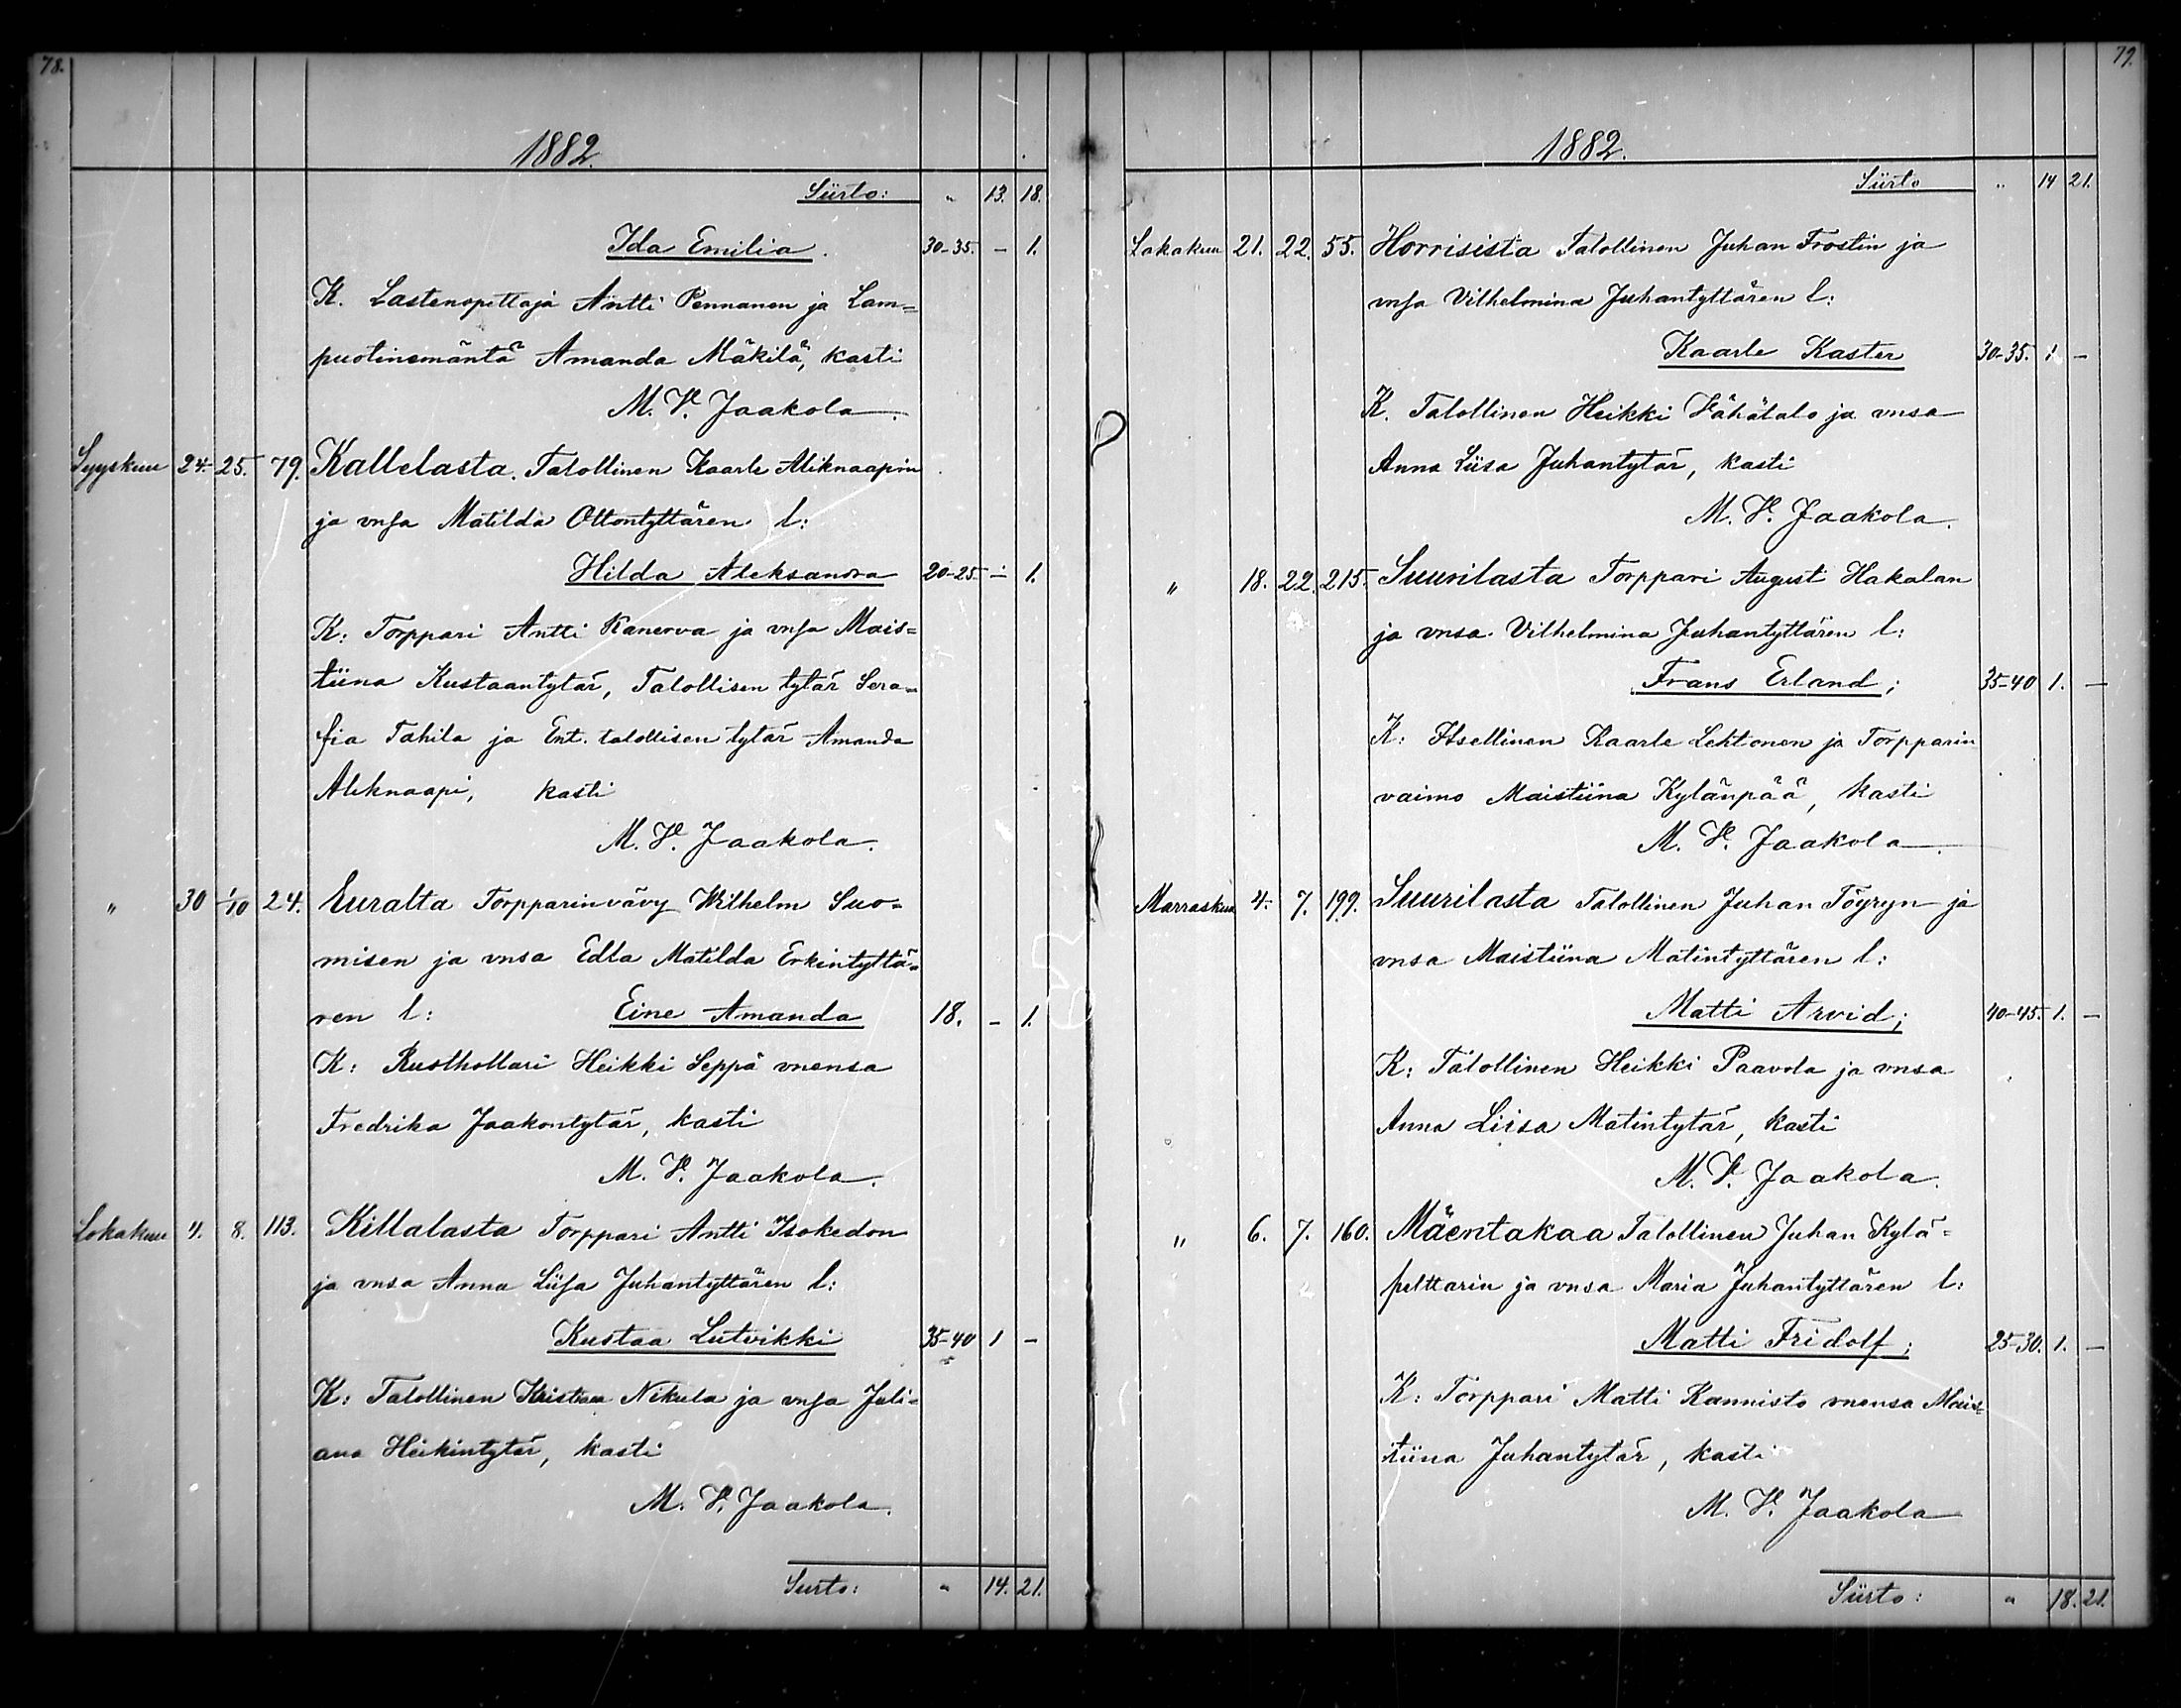 78.
1882.
Siirto: " 13. 18.
Ida Emilia. 30-35. - 1.
K. Lastenopettaja Antti Pennanen ja Lam=
puotinemäntä Amanda Mäkilä, kasti
M. V. Jaakola.
Syyskuu 24. 25. 79. Kallelasta. Talollinen Kaarle Aliknaapin
ja vnsa Matilda Ottontyttären l:
Hilda Aleksandra 20-25 - 1.
K: Torppari Antti Kanerva ja vnsa Mais=
tiina Kustaantytär, Talollisen tytär Sera=
fia Tahila ja Ent. talollisen tytär Amanda
Aliknaapi, kasti
M. V. Jaakola.
" 30 1/10 24. Euralta Torpparinvävy Wilhelm Suo=
misen ja vnsa Edla Matilda Erkintyttä=
ren l: Eine Amanda 18. - 1.
K: Rusthollari Heikki Seppä vnensa
Fredrika Jaakontytär, kasti
M. V. Jaakola.
Lokakuu 4. 8. 113. Killalasta Torppari Antti Isokedon
ja vnsa Anna Liisa Juhantyttären l:
Kustaa Lutvikki 35-40 1 -
K: Talollinen Nikula ja vnsa Juli=
ana Heikintytär, kasti
M. V. Jaakola.
Siirto: " 14. 21.
79.
1882.
Siirto " 14 21.
Lokakuu 21. 22. 55. Horrisista Talollinen Juhan Frostin ja
vnsa Vilhelmina Juhantyttären l:
Kaarle Kaster 30-35. 1 -
K. Talollinen Heikki Vähätalo ja vnsa
Anna Liisa Juhantytär, kasti
M. V. Jaakola.
" 18. 22. 215. Suurilasta Torppari August Hakalan
ja vnsa Vilhelmina Juhantyttären l:
Frans Erland; 35-40 1. -
K: Itsellinen Kaarle Lehtonen ja Torpparin
vaimo Maistiina Kylänpää, kasti
M. V. Jaakola.
Marraskuu 4. 7. 199. Suurilasta Talollinen Juhan Töyryn ja
vnsa Maistiina Matintyttären l:
Matti Arvid; 40-45. 1. -
K: Talollinen Heikki Paavola ja vnsa
Anna Liisa Matintytär, kasti
M. V. Jaakola.
" 6. 7. 160. Mäentakaa Talollinen Juhan Kylä=
pelttarin ja vnsa Maria Juhantyttären l:
Matti Fridolf; 25-30. 1. -
K: Torppari Matti Rannisto vnensa Mais=
tiina Juhantytär, kasti
M. V. Jaakola
Siirto: " 18. 21.